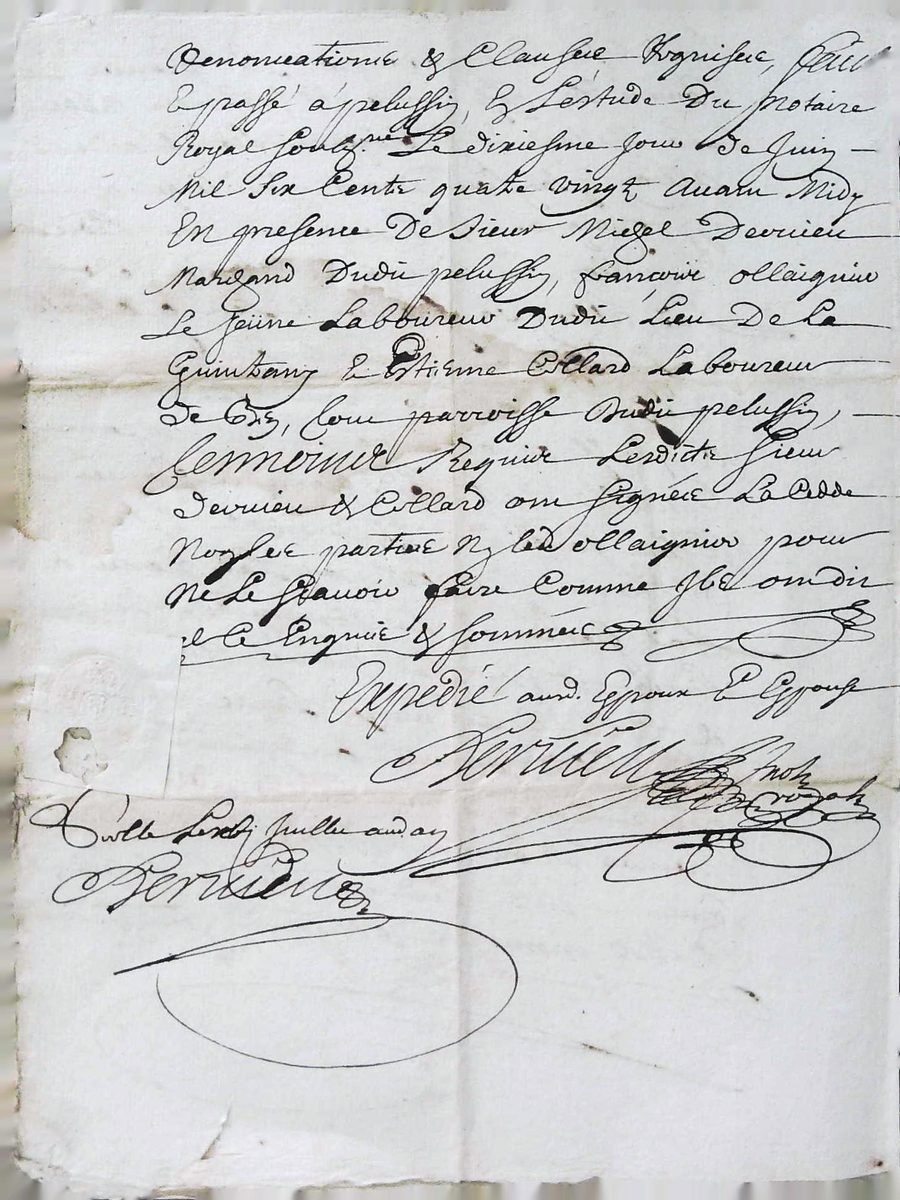 Renonciations & Clauses Requises, Faict
& passé à pelussin, En L'estude Du notaire
Royal soubz.né Le dixiesme Jour de Juin
Mil Six Cents quatre vingt Avant Midy
En presence De Sieur Michel Dervieu
Marchand Dudit pelussin, françois ollaignier
Le Jeüne Laboureur Dudit Lieu De La
& Estienne Collard Laboureur
de parroisse Dudit pelussin,
Tesmoins Requis Lesdicts Sieur
Dervieu & Collard ont signés La Cedde
Non Les parties Ny led ollaignier pour
Ne Le sçavoir faire Comme Ils ont dit
de ce Enquis & sommés
Expedié ausd. Espoux Et Espouse
Dervieu Not. royal
Scellé Juillet aud an
Dervieu